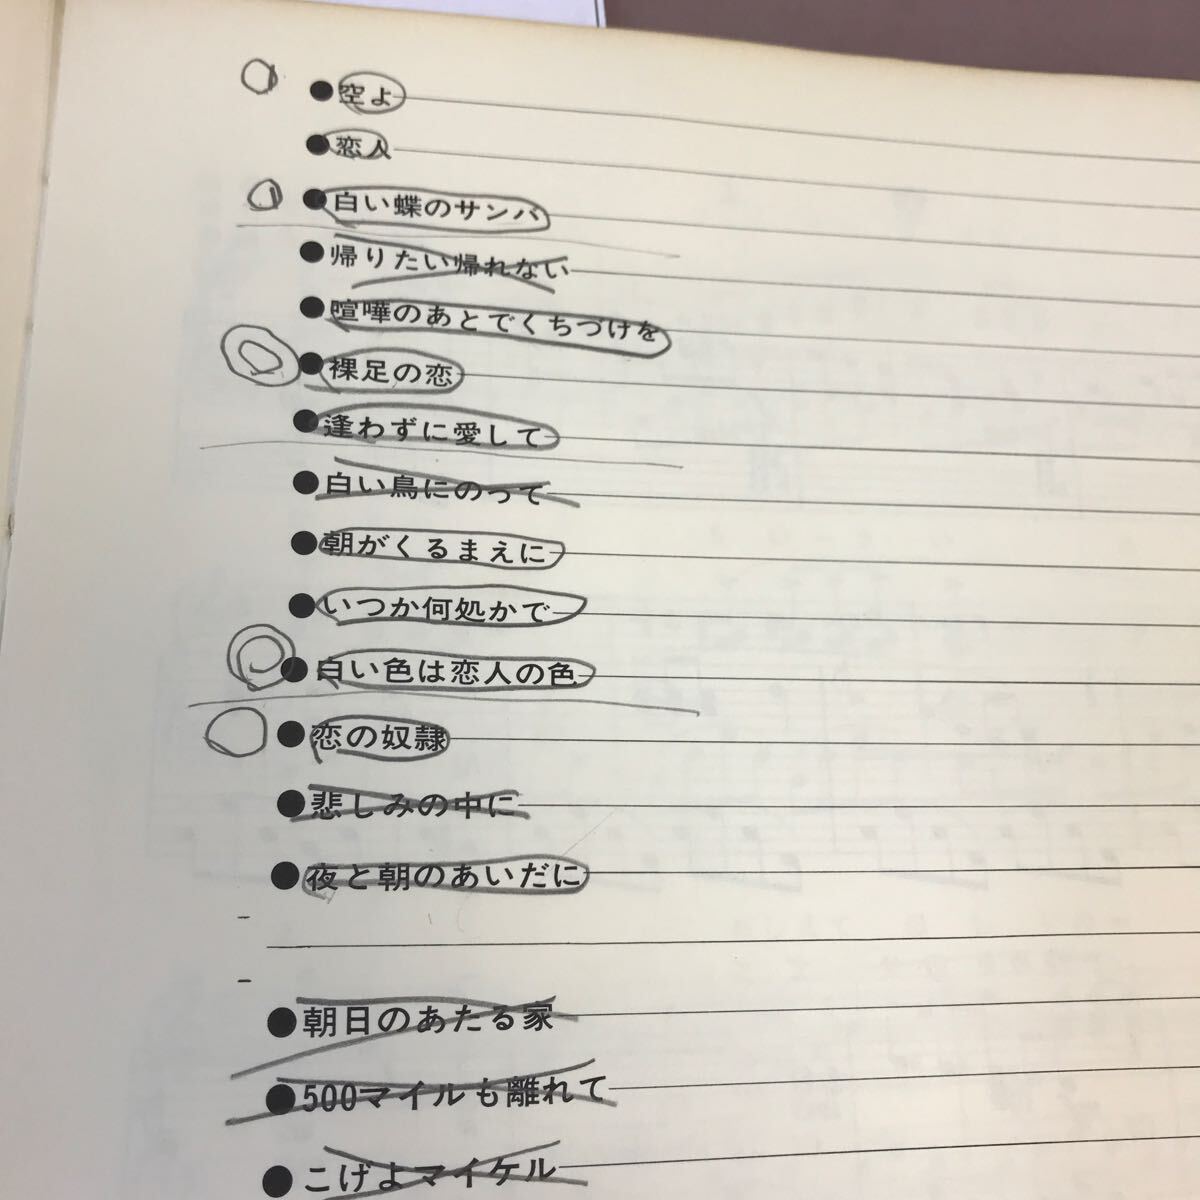 ●空よ
●恋人
●白い蝶のサンバ
●帰りたい帰れない
●喧嘩のあとでくちづけを
●裸足の恋
●逢わずに愛して
●白い鳥にのって
●朝がくるまえに
●いつか何処かで
●白い色は恋人の色
●恋の奴隷
●悲しみの中に
●夜と朝のあいだに
●朝日のあたる家
●500マイルも離れて
●こげよマイケル